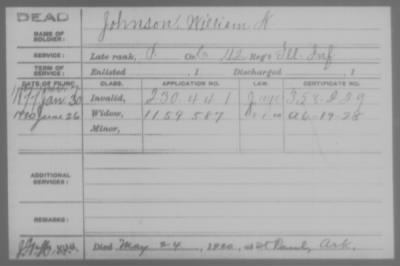 DEAD
NAME OF SOLDIER: Johnson, William N
SERVICE: Late rank, P. Co. G, 112 Reg't Ill. Inf
TERM OF SERVICE: Enlisted , 1 Discharged , 1
DATE OF FILING. CLASS. APPLICATION NO. LAW. CERTIFICATE NO.
Jan. 30 Invalid, 230 441
1920 June 26 Widow, 1159 587 a6-19-28
Minor,
ADDITIONAL SERVICES:
REMARKS:
Died May 24, 1920, at St Paul, Ark.